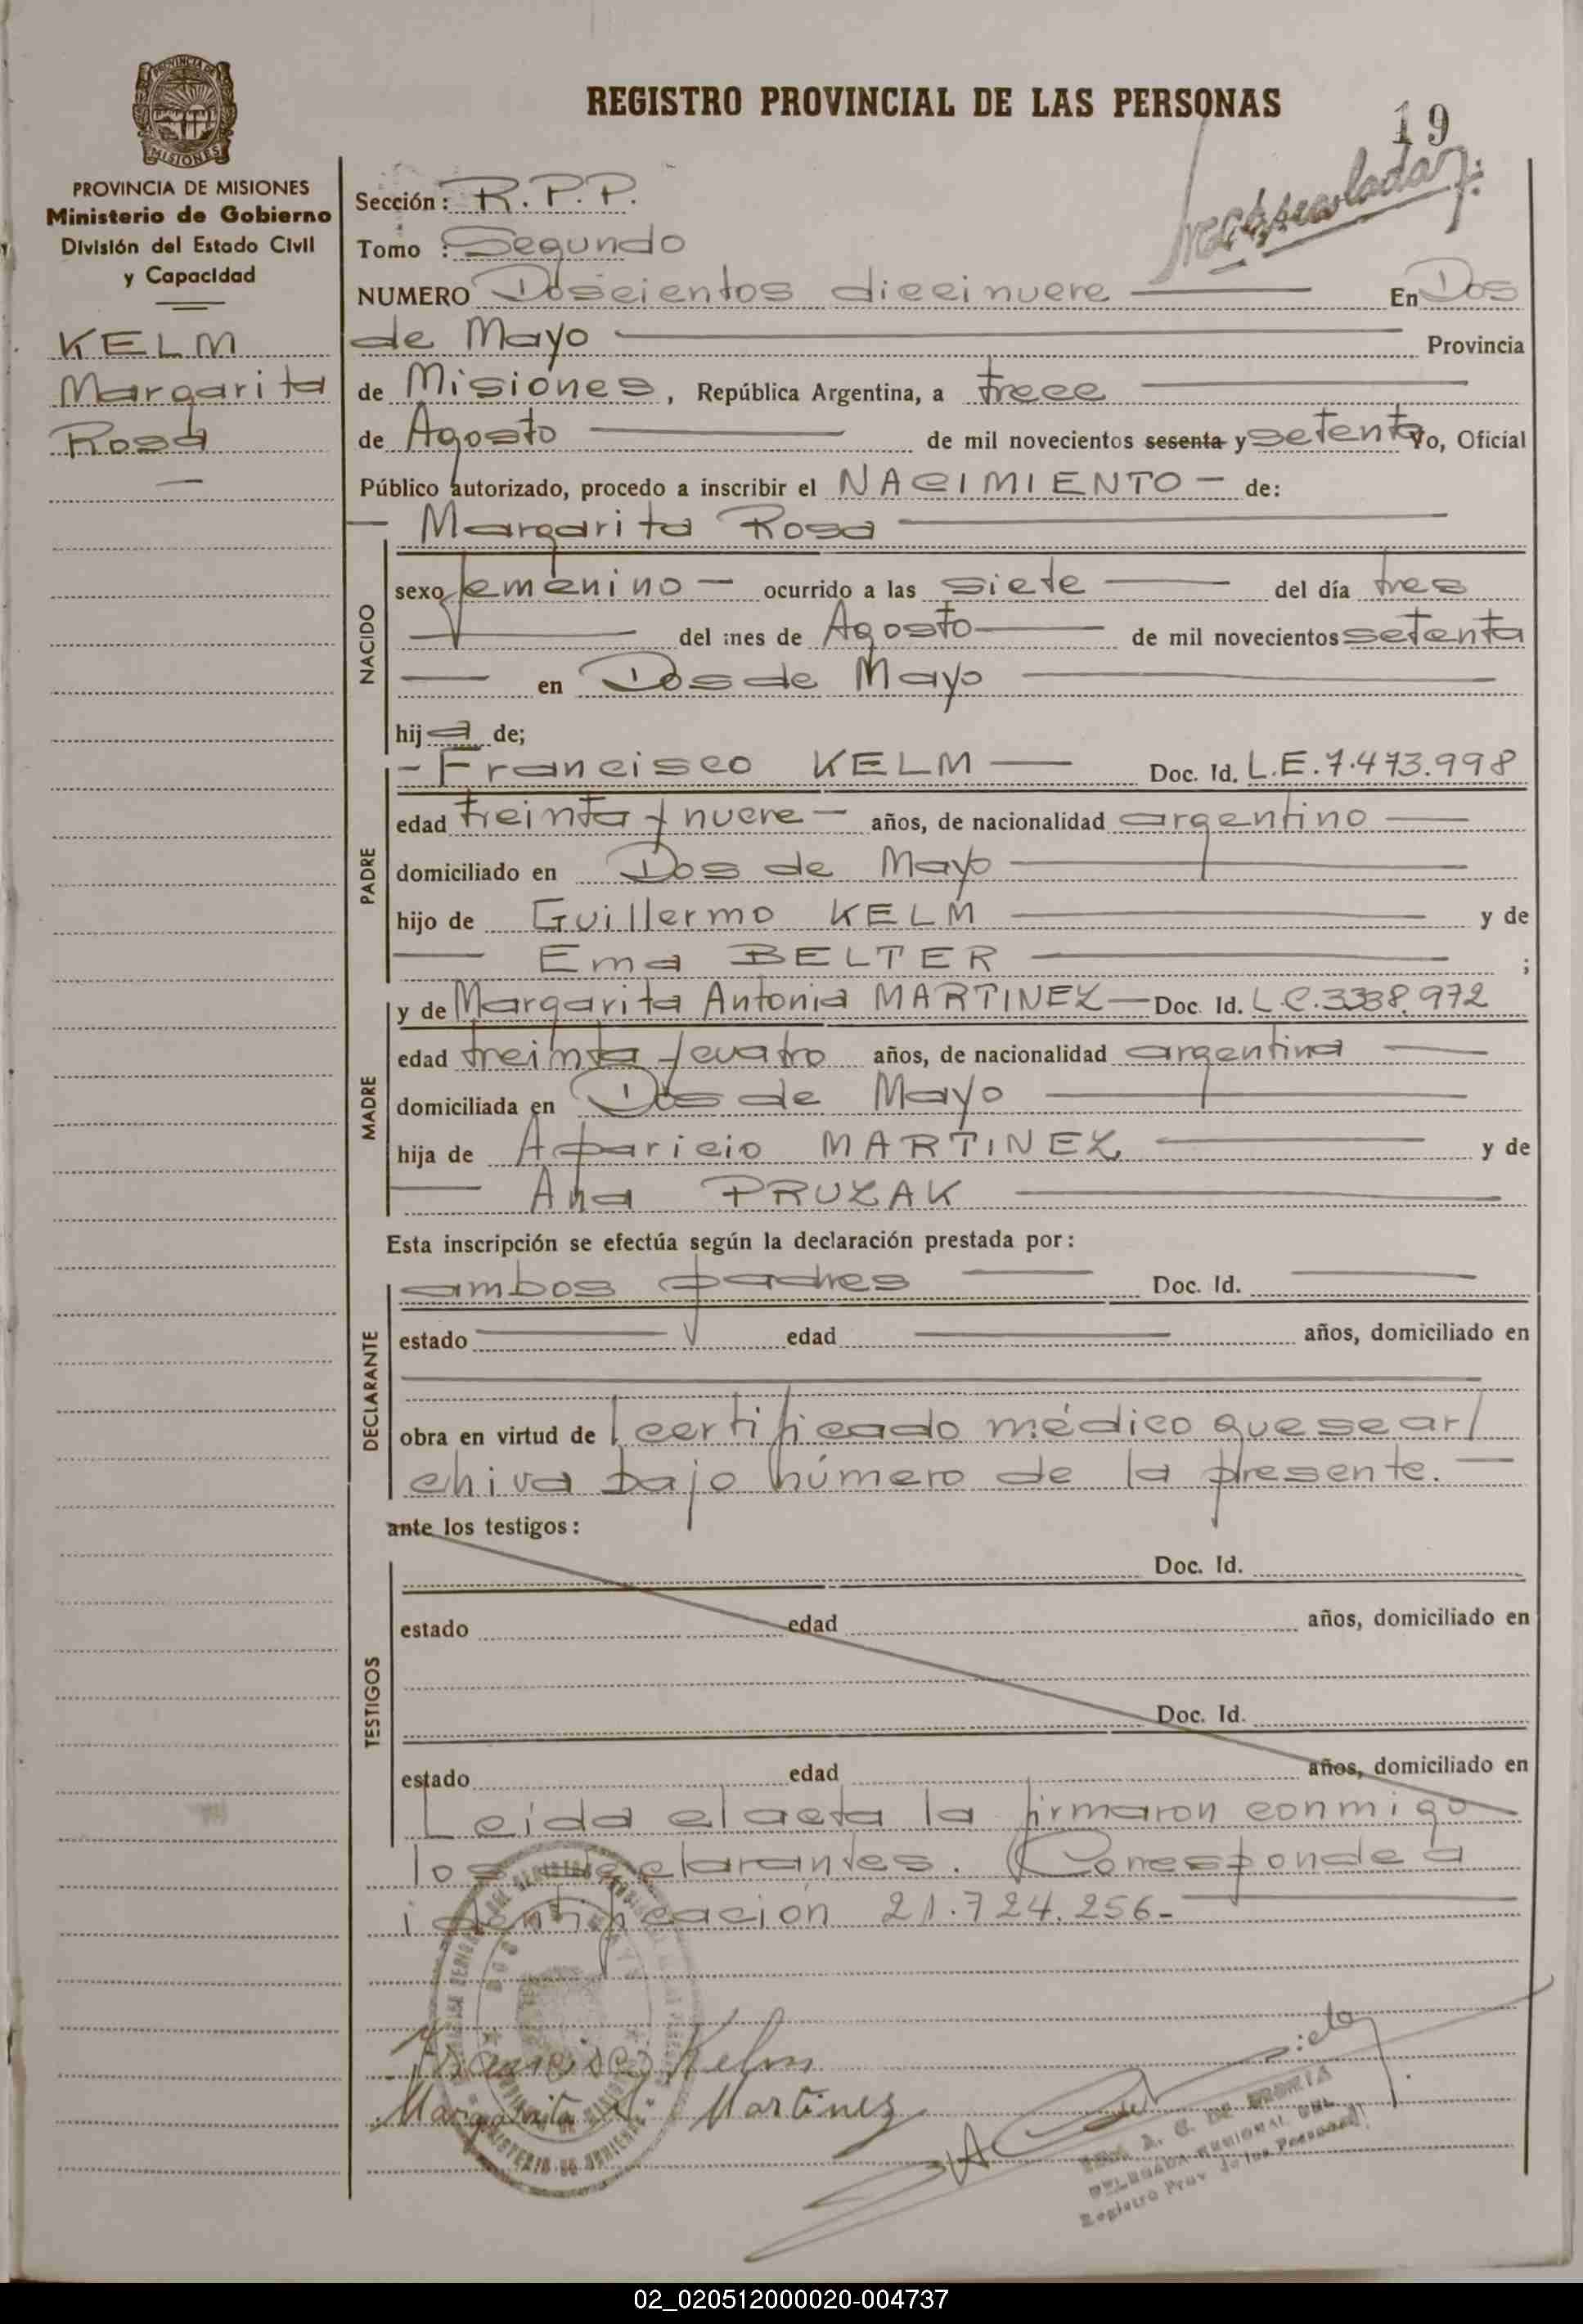 REGISTRO PROVINCIAL DE LAS PERSONAS
19
PROVINCIA DE MISIONES
MISIONES
PROVINCIA DE MISIONES
Ministerio de Gobierno
División del Estado Civil
y Capacidad
KELM
Margarita
Rosa
Sección: R.P.P.
Tomo : Segundo
NUMERO Doscientos diecinueve En Dos
de Mayo Provincia
de Misiones, República Argentina, a trece
de Agosto de mil novecientos sesenta y setenta Yo, Oficial
Público autorizado, procedo a inscribir el NACIMIENTO - de:
Margarita Rosa
NACIDO
sexo femenino - ocurrido a las siete del día tres
del mes de Agosto de mil novecientos setenta
en Dos de Mayo
hija de;
PADRE
- Francisco KELM Doc. Id. L.E.7.473.998
edad treinta y nueve - años, de nacionalidad argentino
domiciliado en Dos de Mayo
hijo de Guillermo KELM y de
Ema BELTER ;
MADRE
y de Margarita Antonia MARTINEZ Doc. Id. L.C.3338.972
edad treinta y cuatro años, de nacionalidad argentina
domiciliada en Dos de Mayo
hija de Aparicio MARTINEZ y de
Ana PRUZAK
Esta inscripción se efectúa según la declaración prestada por:
DECLARANTE
ambos padres Doc. Id.
estado edad años, domiciliado en
obra en virtud de certificado médico que se ar/
chiva bajo número de la presente.
ante los testigos:
TESTIGOS
Doc. Id.
estado edad años, domiciliado en
Doc. Id.
estado edad años, domiciliado en
Leída el acta la firmaron conmigo
los declarantes. Corresponde a
identificación 21.724.256-
Francisco Kelm
Margarita A. Martinez
DELEGADA REGIONAL DEL
Registro Prov. de las Personas
02_020512000020-004737